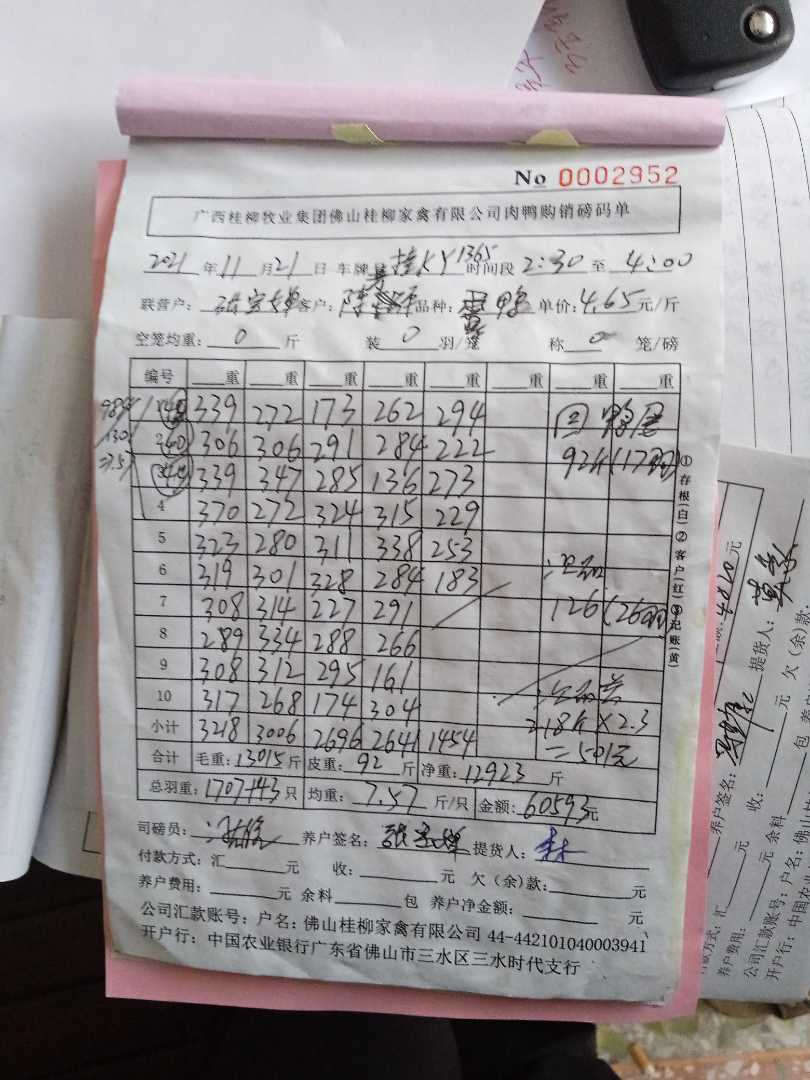 No 0002952
广西桂柳牧业集团佛山桂柳家禽有限公司肉鸭购销磅码单
2021年11月21日 车牌号桂KY1365时间段2:30至4:00
联营户: 客户:陈 品种: 鸭 单价:4.65元/斤
空笼均重:0斤 装0羽/笼 称0笼/磅
编号 重 重 重 重 重 重 重 重
1 339 272 173 262 294
2 306 306 291 284 222 92斤(17羽)
3 339 347 285 136 273
4 370 272 324 315 229
5 323 280 311 338 253
6 319 301 328 284 183
7 308 314 227 291 126(26羽)
8 289 334 288 266
9 308 312 295 161
10 317 268 174 304
小计 3218 3006 2696 2641 1454 218斤×2.3
=501元
合计 毛重:13015斤 皮重:92斤 净重:12923斤
总羽重:1707+43只 均重:7.57斤/只 金额:60593元
司磅员: 养户签名: 提货人:
付款方式:汇 元 收: 元 欠(余)款: 元
养户费用: 元 余料 包 养户净金额: 元
公司汇款账号:户名:佛山桂柳家禽有限公司 44-442101040003941
开户行:中国农业银行广东省佛山市三水区三水时代支行
①存根(白)②客户(红)③记账(黄)
4020元
提货人:
养户签名:
欠(余)款
收: 元
元 余料 包
付款方式:汇
养户费用:
公司汇款账号:户名:佛山
开户行:中国农业